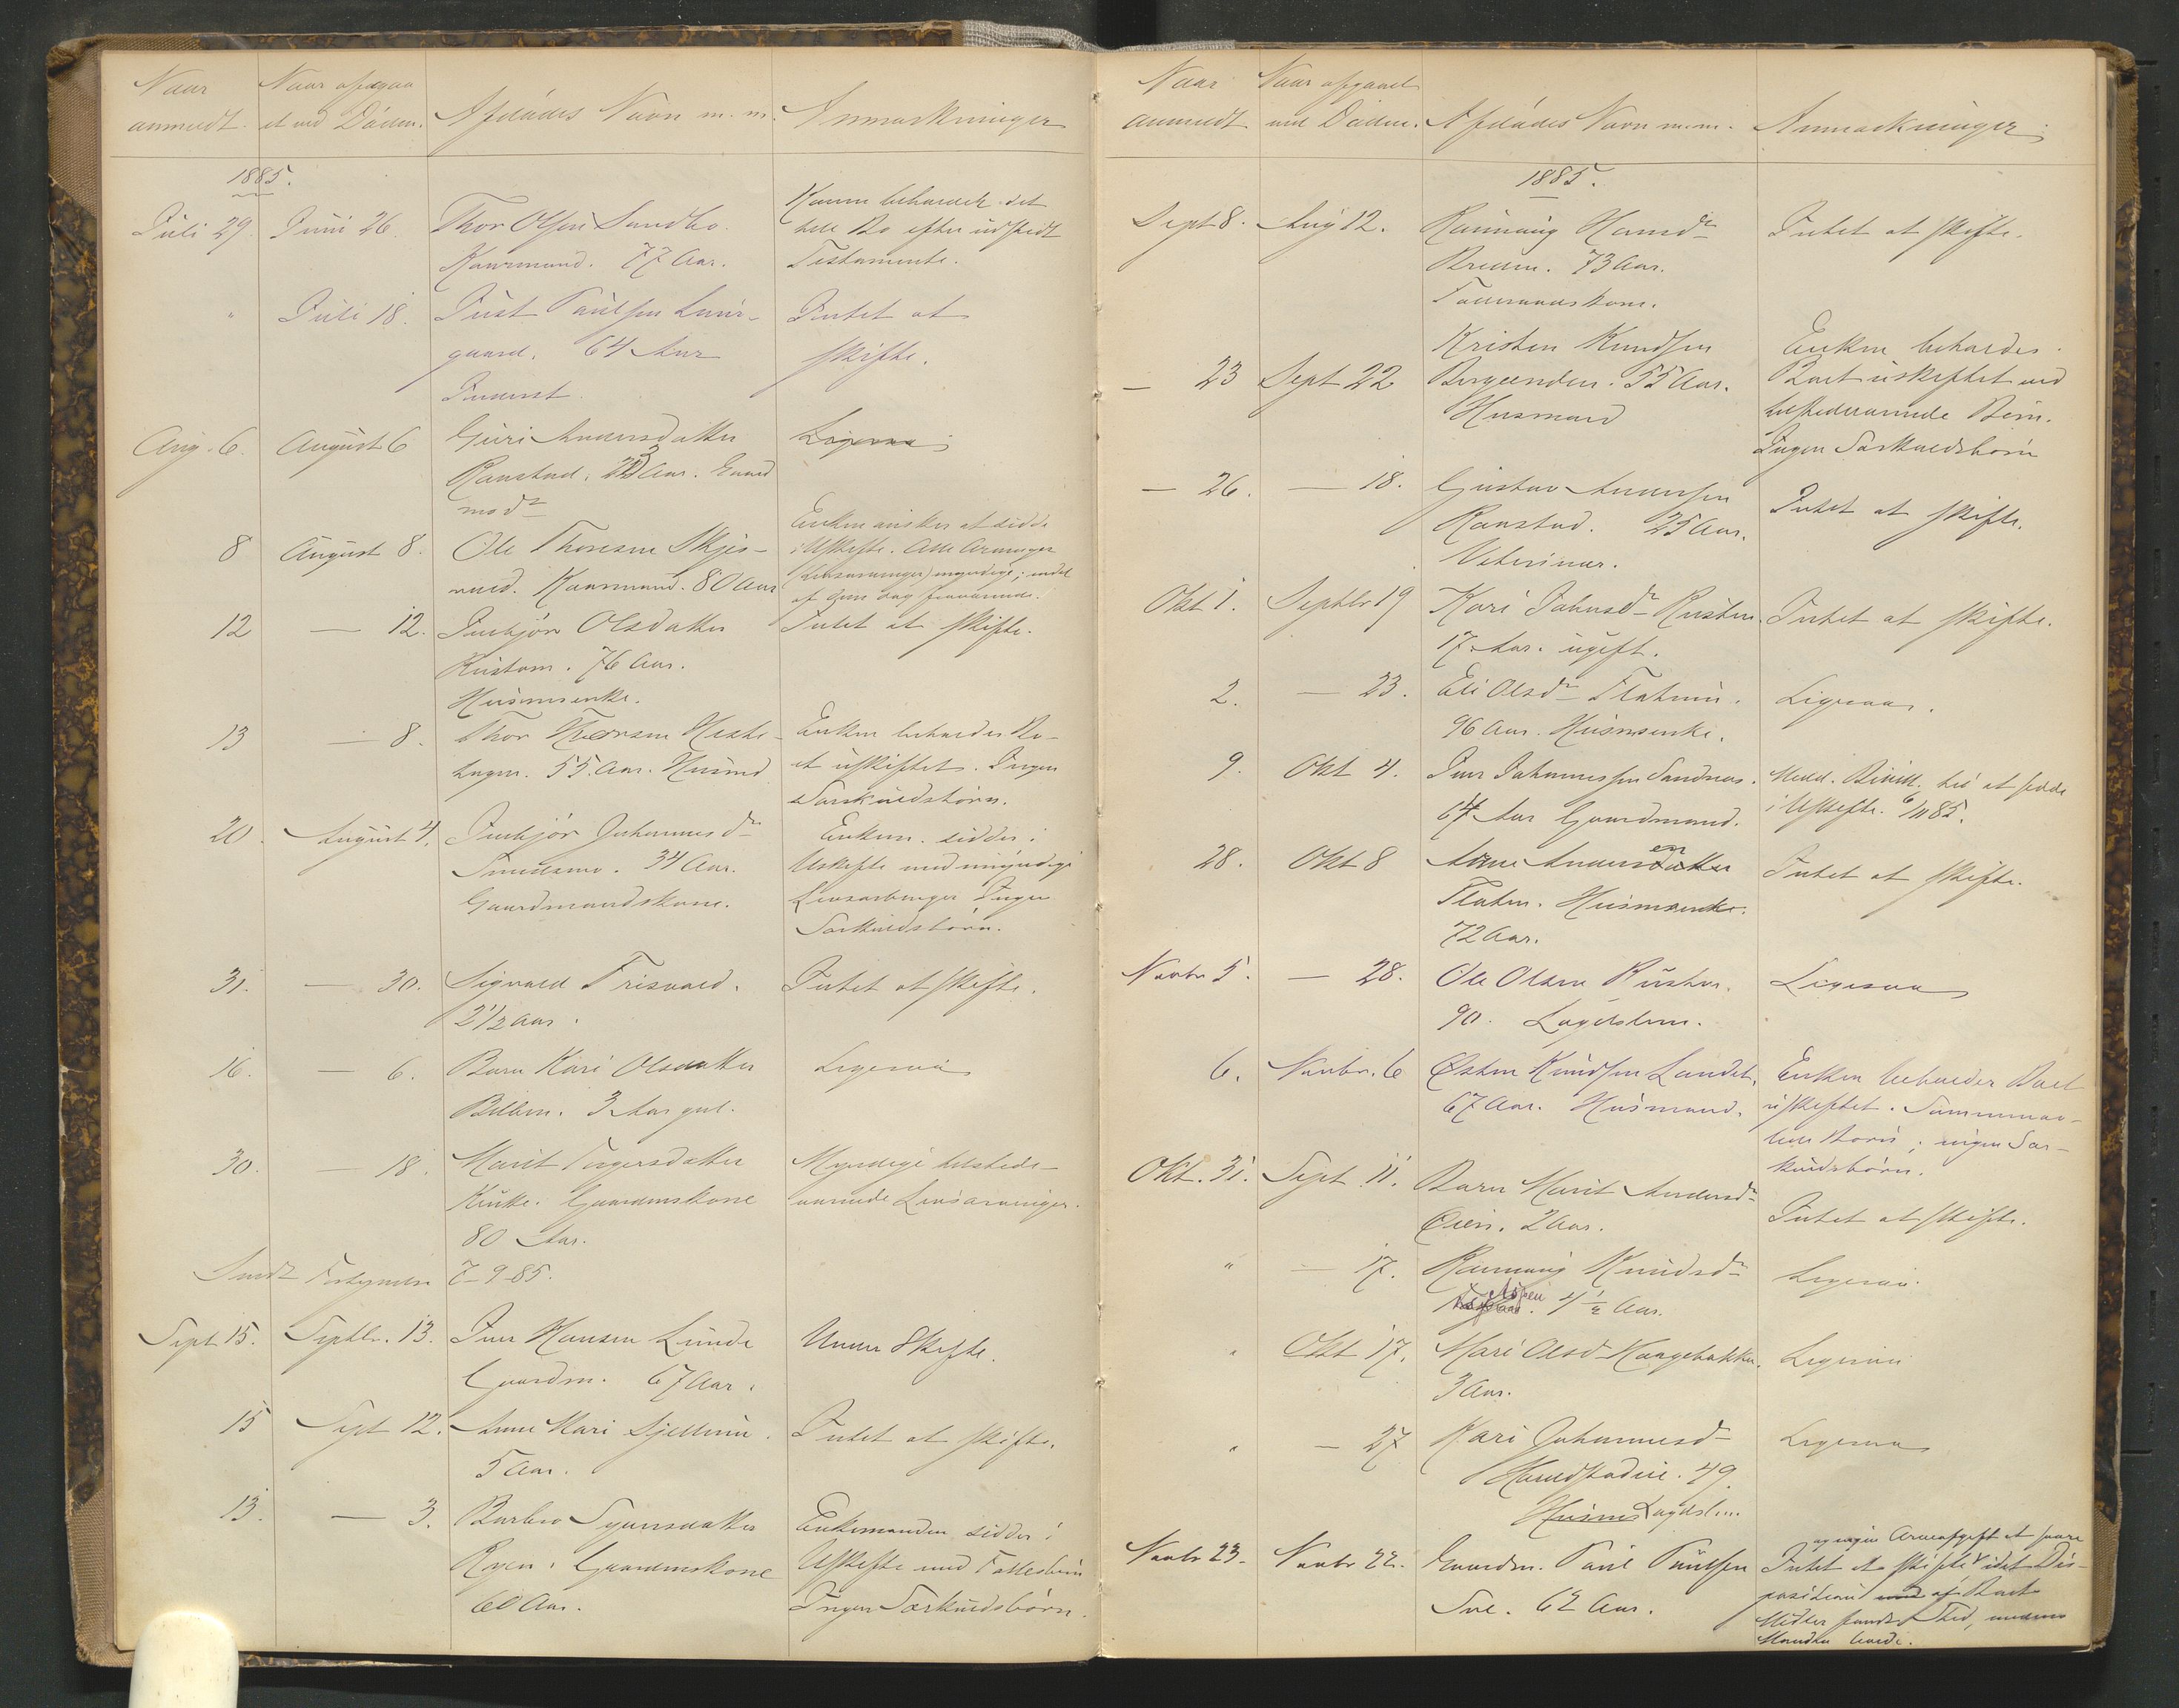 Naar
anmeldt.
Naar afgaa
et ved Döden.
Afdödes Navn m.m.
Anmærkninger
1885.
Juli 29. Juni 26. Thor Olsen Sundbo
Kaarmand. 77 Aar.
Konen beholder det
hele Bo efter udstedt
Testamente.
" Juli 18. Just Paulsen
gaard. 64 Aar
Inderst.
Intet at
skifte.
Aug. 6. August 6 Guri Andersdatter
Ranstad. Aar. Gaard
md
Ligesaa
8 August 8. Ole Thoresen Skjes-
vold. Kaarmand. 80 Aar
Enken önsker at sidde
i Uskifte. Alle Arvinger
(Livsarvinger) myndige; endel
af dem dog fraværende.
12 — 12. Ingebjör Olsdatter
Rusten. 76 Aar.
Husmsenke.
Intet at skifte.
13 — 8. Thor Thoresen Heste-
hagen. 55 Aar. Husmd
Enken beholder Bo-
et uskiftet. Ingen
Særkuldsbörn.
20. August 4. Ingebjör Johannesdr
34 Aar.
Gaardmandskone.
Enkem. sidder i
Uskifte med umyndige
Livsarvinger Ingen
Særkuldsbörn.
31. — 30. Sigvald Frisvold.
2 1/2 Aar.
Intet at skifte.
16. — 6. Barn Kari Olsdatter
3 Aar gml.
Ligesaa
30. — 18. Marit Torgersdatter
Gaardmskone
80 Aar.
Myndige tilstede-
værende Livsarvinger.
Sendt Fortegnelse 7-9-85.
Sept 15. Septbr. 13. Iver Hansen Lunde
Gaardm. 67 Aar.
Under Skifte.
15 Sept 12. Anne Mari
5 Aar.
Intet at skifte.
13. — 3. Barbro Syversdatter
Ryen. Gaardmskone
60 Aar.
Enkemanden sidder i
Uskifte med Fællesbörn
Ingen Særkuldsbörn.
Naar
anmeldt
Naar afgaaet
ved Döden.
Afdödes Navn m.m.
Anmærkninger
1885.
Sept 8. Aug 12. Rönnaug Hansdr
73 Aar.
Intet at skifte.
— 23 Sept 22 Kristen Knudsen
Bergeenden. 55 Aar.
Husmand
Enken beholder
Boet uskiftet med
tilstedeværende Börn.
Ingen Særkuldsbörn
— 26. — 18. Gustav Andersen
Ranstad. 25 Aar.
Veterinær.
Intet at skifte.
Okt 1. Septbr 19 Kari Johnsdr Rusten.
17 Aar. ugift.
Intet at skifte.
2. — 23. Eli Olsdr
96 Aar. Husmsenke.
Ligesaa.
9. Okt 4. Iver Johannessen Sandnes.
67 Aar Gaardmand.
Medd. Bevill. til at sidde
i Uskifte. 6/11 85.
28. Okt 8 Arne Andersen
Flaten. Husmsenke.
72 Aar.
Intet at skifte.
Novbr 5. — 28. Ole Olsen Rusten.
90. Lægdslem.
Ligesaa
6. Novbr. 6 Østen Knudsen Landet.
67 Aar. Husmand.
Enken beholder Boet
uskiftet. Sammenav-
lede Börn; ingen Sær-
kuldsbörn.
Okt. 31. Sept. 11. Barn Marit Andersdr
Öien. 2 Aar.
Intet at skifte.
" — 17. Rönnaug Knudsdr
4 1/2 Aar.
Ligesaa.
" Okt 17. Mari Olsd Haugebakken.
3 Aar.
Ligesaa
" — 27 Kari Johannesd
49
Husms Lægdslem
Ligesaa
Novbr 23. Novbr 22. Gaardm. Paul Paulsen
Sve. 62 Aar.
og ingen Arveafgift at svare
Intet at skifte idet Dis-
position af Boets
Midler fandt Sted, medens
Manden levede.